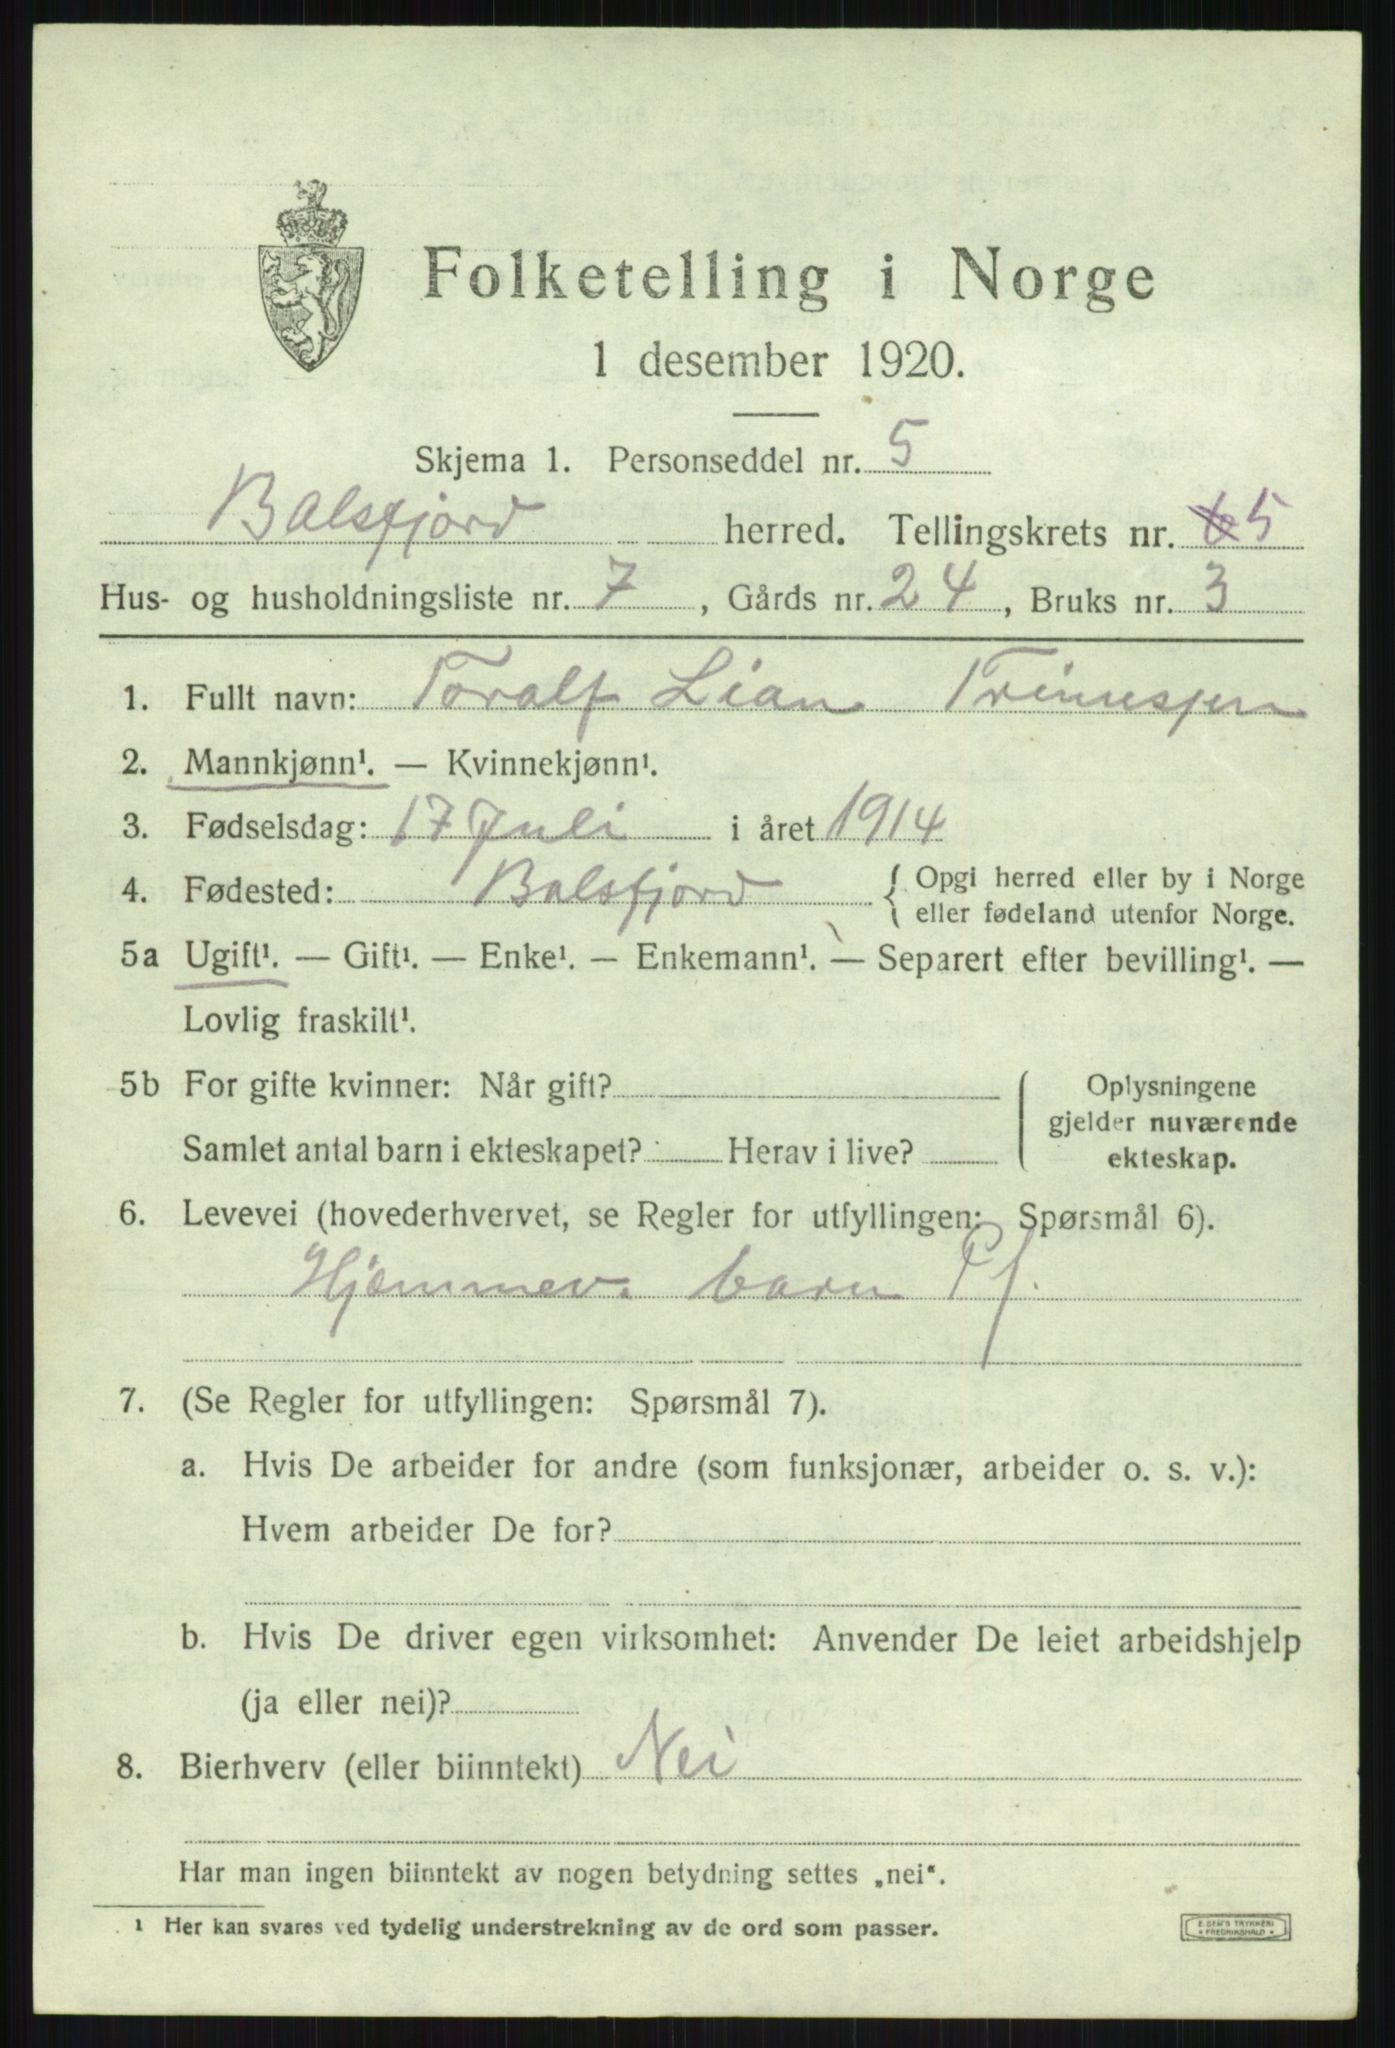 Folketelling i Norge
1 desember 1920.
Skjema 1. Personseddel nr. 5
Balsfjord herred. Tellingskrets nr. 5
Hus- og husholdningsliste nr. 7, Gårds nr. 24, Bruks nr. 3
1. Fullt navn: Toralf Lian
2. Mannkjønn¹. — Kvinnekjønn¹.
3. Fødselsdag: 17 Juli i året 1914
4. Fødested: Balsfjord { Opgi herred eller by i Norge
eller fødeland utenfor Norge.
5a Ugift¹. — Gift¹. — Enke¹. — Enkemann¹. — Separert efter bevilling¹. —
Lovlig fraskilt¹.
5b For gifte kvinner: Når gift?
Samlet antal barn i ekteskapet? Herav i live?
Oplysningene
gjelder nuværende
ekteskap.
6. Levevei (hovederhvervet, se Regler for utfyllingen: Spørsmål 6).
Hjemmev. barn
7. (Se Regler for utfyllingen: Spørsmål 7).
a. Hvis De arbeider for andre (som funksjonær, arbeider o. s. v.):
Hvem arbeider De for?
b. Hvis De driver egen virksomhet: Anvender De leiet arbeidshjelp
(ja eller nei)?
8. Bierhverv (eller biinntekt) Nei
Har man ingen biinntekt av nogen betydning settes „nei“.
¹ Her kan svares ved tydelig understrekning av de ord som passer.
E. SEM'S TRYKKERI
• FREDRIKSHALD •